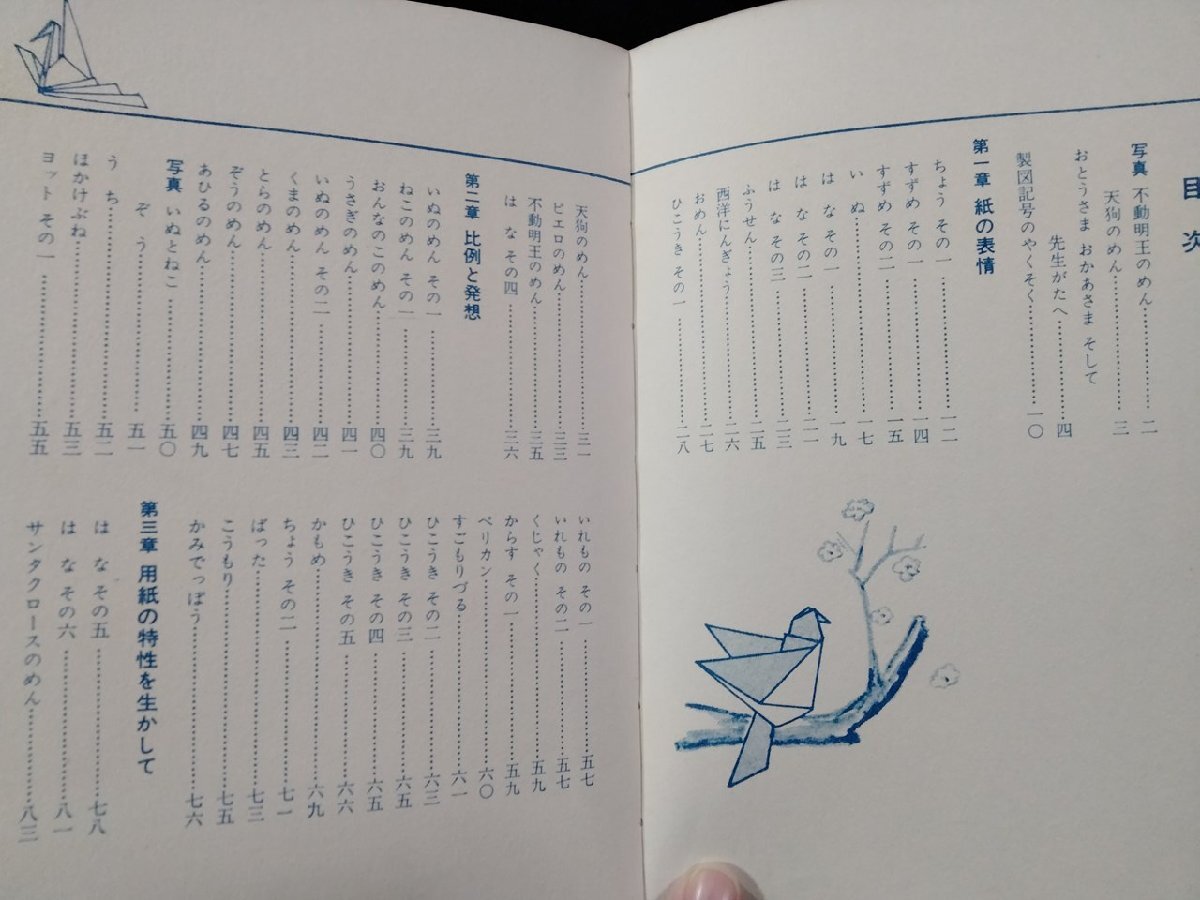 目次
写真 不動明王のめん……二
天狗のめん……三
おとうさま おかあさま そして
先生がたへ……四
製図記号のやくそく……一〇
第一章 紙の表情
ちょう その一……一二
すずめ その一……一四
すずめ その二……一五
いぬ……一七
はな その一……一九
はな その二……二一
はな その三……二三
ふうせん……二五
西洋にんぎょう……二六
おめん……二七
ひこうき その一……二八
天狗のめん……三一
ピエロのめん……三三
不動明王のめん……三五
はな その四……三六
第二章 比例と発想
いぬのめん その一……三九
ねこのめん その一……三九
おんなのこのめん……四〇
うさぎのめん……四一
いぬのめん その二……四二
くまのめん……四三
とらのめん……四五
ぞうのめん……四七
あひるのめん……四九
写真 いぬとねこ……五〇
ぞう……五一
うち……五二
ほかけぶね……五三
ヨット その一……五五
いれもの その一……五七
いれもの その二……五七
くじゃく……五九
からす その一……五九
ペリカン……六〇
すごもりづる……六一
ひこうき その二……六三
ひこうき その三……六五
ひこうき その四……六五
ひこうき その五……六六
かもめ……六九
ちょう その二……七一
ばった……七三
こうもり……七五
かみでっぽう……七六
第三章 用紙の特性を生かして
はな その五……七八
はな その六……八一
サンタクロースのめん……八三